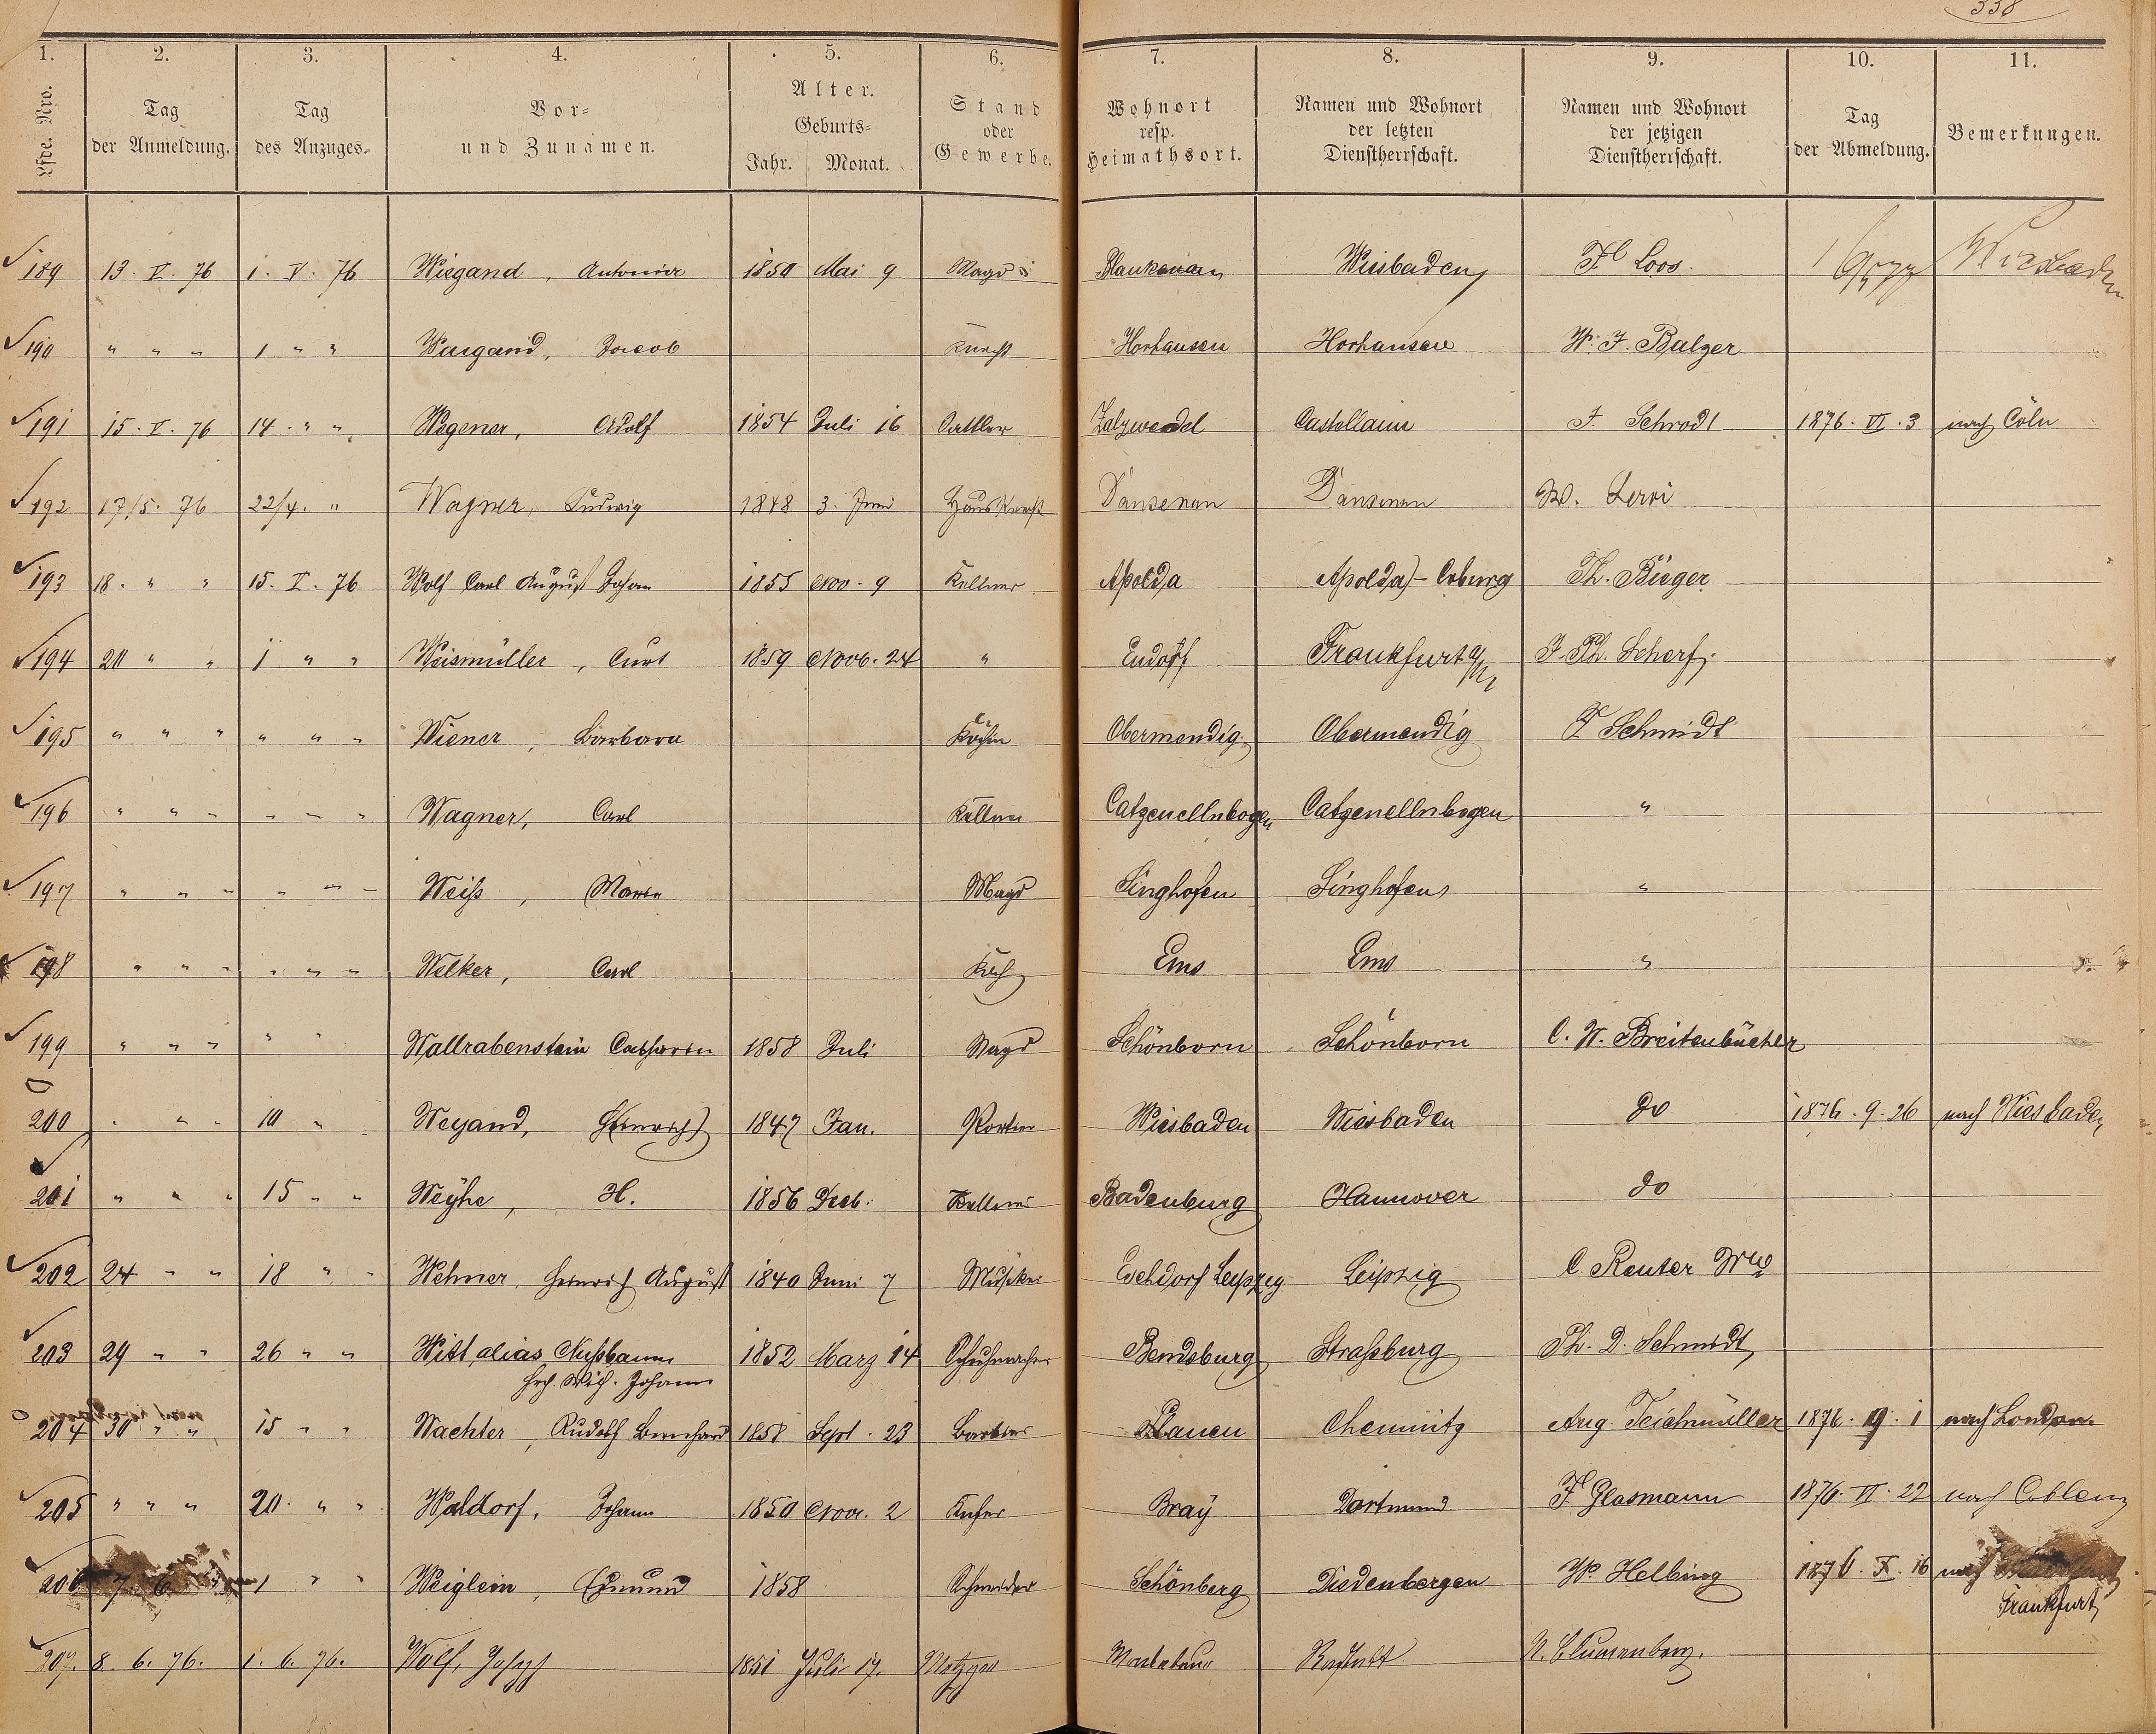 338
1. 2. 3. 4. 5. 6. 7. 8. 9. 10. 11.
Lfde. Nro. Tag der Anmeldung. Tag des Anzuges. Vor- und Zunamen. Alter. Geburts- Jahr. Monat. Stand oder Gewerbe. Wohnort resp. Heimathsort. Namen und Wohnort der letzten Dienstherrschaft. Namen und Wohnort der jetzigen Dienstherrschaft. Tag der Abmeldung. Bemerkungen.
189 13. V. 76 1. V. 76 Wiegand, Antonie 1850 Mai 9 Magd Blankenau Wiesbaden Fr. Loos. Wiesbaden
190 " " " 1 " " Waigand, Jacob Knecht Horhausen Horhausen W. F. Balzer
191 15. V. 76 14. " " Wegener, Adolf 1854 Juli 16 Sattler Salzwedel Castellaun F. Schrodt 1876. VI. 3 nach Cöln
192 17/5. 76 22/4. " Wagner, Ludwig 1848 3. Juni Hausknecht Dausenau Dausenau
193 18. " " 15. V. 76 Wolf Carl August Johan 1855 Nov. 9 Kellner Apolda Apolda - Coburg Th. Bieger
194 20 " " 1 " " Weismüller, Curt 1859 Novb. 24 " Frankfurt a/M J. Ph. Scherf.
195 " " " " " " Wiener, Barbara Köchin Obermendig Obermendig F Schmidt
196 " " " " " " Wagner, Carl Kellner Catzenellnbogen Catzenellnbogen "
197 " " " " " " Weiß, Maria Magd Singhofen Singhofen "
198 " " " " " " Welker, Carl Koch Ems Ems "
199 " " " " " Wallrabenstein Catharin 1858 Juli Magd Schönborn Schönborn C. W. Breitenbücher
200 " " " 10 " Weyand, Heinrich 1847 Jan. Portier Wiesbaden Wiesbaden do 1876. 9. 26 nach Wiesbaden
201 " " " 15 " " Weyhe, H. 1856 Kellner Badenburg Hannover do
202 24 " " 18 " " Wehner, Heinrich August 1840 Juni 7 Musiker Leipzig Leipzig C Reuter Wwe
203 29 " " 26 " " Witt, alias Nußbaum 1852 März 14 Schuhmacher Straßburg Ph. D. Schmidt
Johann
204 30 " " 15 " " Wachter, Rudolf Bernhard 1858 Sept. 23 Barbier Plauen Chemnitz Aug. Teichmüller 1876. 9. 1 nach London.
205 " " " 20. " " Waldorf, Johann 1850 Nov. 2 Küfer Bray Dortmund F. Glasmann 1876. VI. 22 nach Coblenz
206 7. 6 1 " " Weiglein, Edmund 1858 Schneider Schönberg Diedenbergen W. Helbing 1876. X. 16 nach
Frankfurt
207. 8. 6. 76. 1. 6. 76. Wolf, Joseph 1851 Juli 17. Metzger Rastatt Blumenberg.